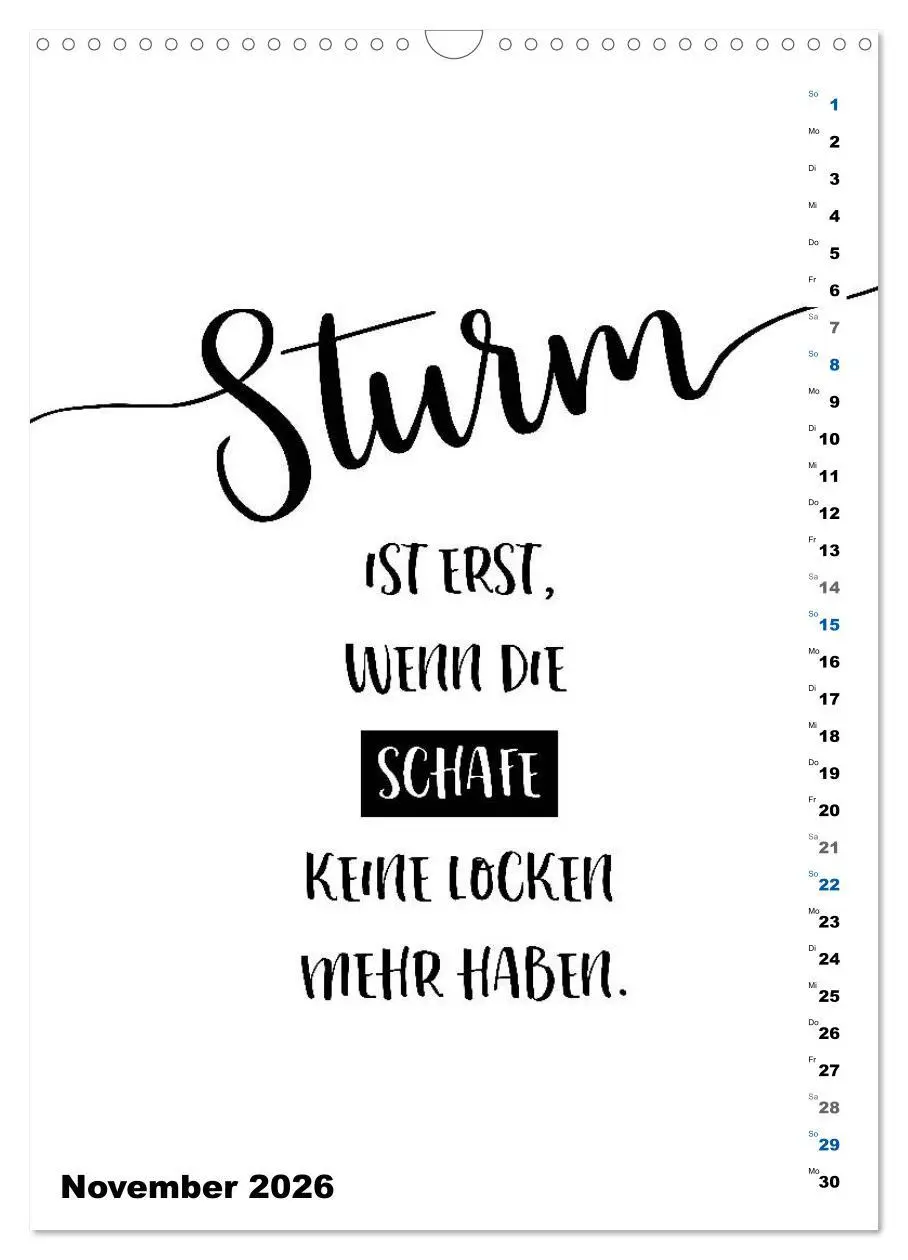 Sturm
IST ERST,
WENN DIE
SCHAFE
KEINE LOCKEN
MEHR HABEN.
So 1
Mo 2
Di 3
Mi 4
Do 5
Fr 6
Sa 7
So 8
Mo 9
Di 10
Mi 11
Do 12
Fr 13
Sa 14
So 15
Mo 16
Di 17
Mi 18
Do 19
Fr 20
Sa 21
So 22
Mo 23
Di 24
Mi 25
Do 26
Fr 27
Sa 28
So 29
Mo 30
November 2026